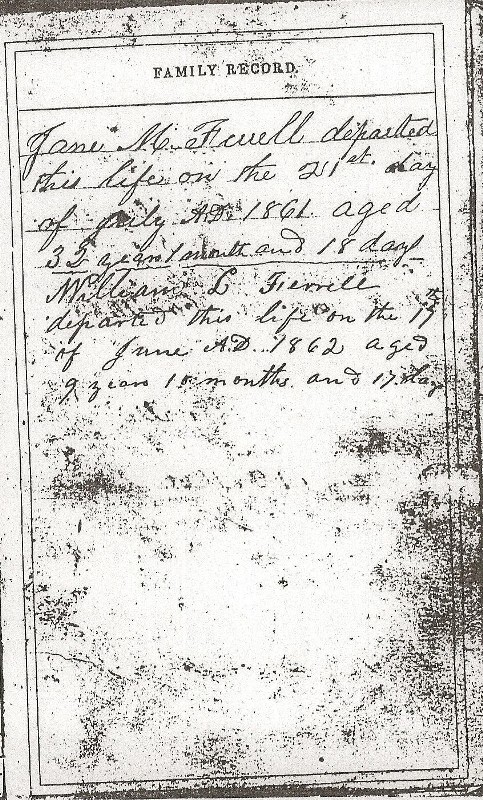 FAMILY RECORD.
Jane M. Ferrell departed
this life on the 21st. day
of july A.D. 1861. aged
32 years 1 month and 18 days
William L Ferrell
departed this life on the 17th
of June A.D. 1862 aged
9 years 10 months. and 17. days